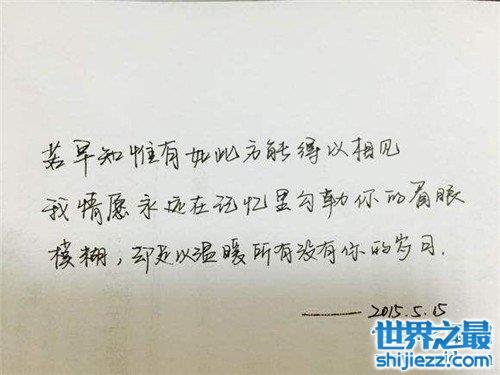 若早知惟有如此方能得以相见
我情愿永远在记忆里勾勒你的眉眼
模糊，却足以温暖所有没有你的岁月.
——2015.5.15
世界之最
shijiezzi.com